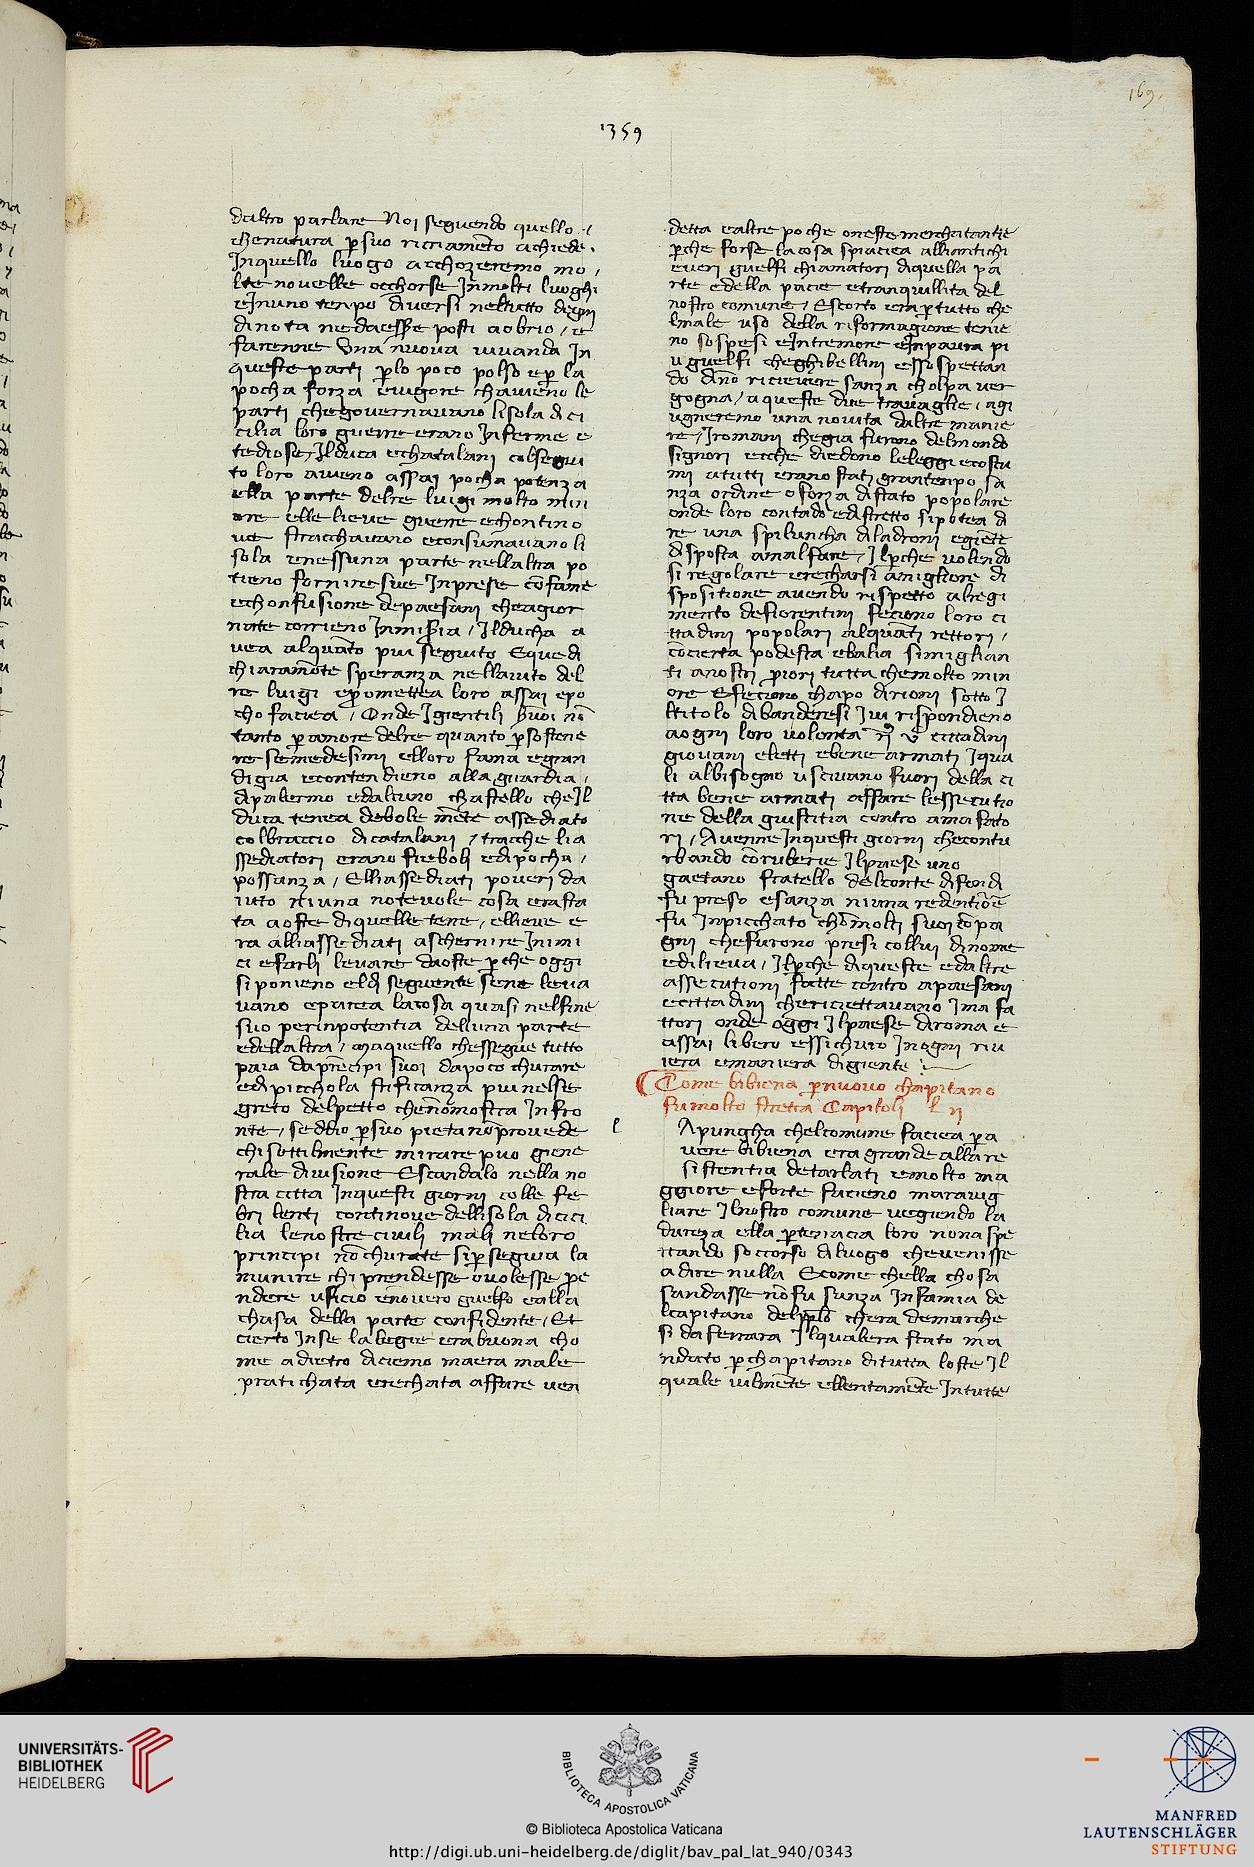 169.
1359
daltro parlare Noi seguendo quello
chenatura p suo riciamēto achiede.
Inquello luogo acchozeremo mo
lte novelle occhorse Inmolti luoghi
eInuno tenpo diversi neltutto degni
dinota nedaesse posti aobrio / e
farenne Una nuova vivanda In
queste parti plo poco polso ep la
pocha forza evigore chavieno le
parti chegovernavano lisola dici
cilia loro guerre erano Inferme e
tediose / Ilduca echatalani colsegui
to loro aveno assai pocha potenza
ella parte delre luigi molto min
ore elle lieve guerre echontino
ve stracchavano econsumavano li
sola enessuna parte nellaltra po
tieno fornire sue Inprese cō fame
echonfusione depaesani cheagior
nate corrieno Inmisia / Ilducha a
vea alquāto piu seguito Equedi
chiaramōte speranza nellaiuto del
re luigi epromettea loro assai epo
cho faciea / Onde Igientili huoi nō
tanto p amore delre quanto p sostene
re semedesimi elloro fama egran
digia econtendieno alla guardia /
dipalermo edalcuno chastello cheIl
duca tenea debole mēte assediato
colbraccio dicatalani / tracche lia
ssediatori erano fieboli edipocha /
possanza / Elliassediati poveri da
iuto niuna notevole cosa erafta
ta aoste diquelle terre / ellieve e
ra alliassediati aschernire Inimi
ci efarli levare daoste pche oggi
siponieno eldi seguente sene leva
vano eparea lacosa quasi nelfine
suo perinpotentia delluna parte
edellaltra / Maquello chessegue tutto
paia daprēcipi suoi dapoco churare
edipicchola stificanza piu nelse
greto delpetto chenōmostra Infro
nte / seddio psuo pieta nōprovede
chisottilmente mirare puo giene
rale divisione Escandalo nella no
stra citta Inquesti giorni colle fe
bri lenti continove dellisola dicici
lia lenostre civili mali neloro
principi nō churate sipseguia la
munire chi prendesse ovolesse pe
ndere uficio enōvero guelfo ealla
chasa della parte confidente / Et
cierto Inse labegie era buona cho
me adietro diciemo maera male
pratichata erechata affare ven
detta ealtre poche oneste merchatantie
pche forse lacosa spiaciea alliantichi
everi guelfi chiamatori diquella pa
rte edella pacie etranquillita del
nostro comune / Escorto era ptutto che
lmale uso della riformagione tenie
no sospesi eIntremore eInpaura pi
u guelfi cheghibellini essospettan
do dāno ricievere sanza cholpa ver
gogna / aqueste due travaglie / agi
ugneremo una novita daltre manie
re / Iromani chegia furono delmondo
signori etche diedono leleggi ecostu
mi atutti erano stati grantenpo sa
nza ordine o forza distato popolare
onde loro contado edistretto sipotea di
re una spiluncha diladroni egiēte
disposta amalfare / Ilpche volendo
si regolare erecharsi amigliore di
spositione avendo rispetto alregi
mento defiorentini feciono loro ci
ttadini popolari alquāti rettori /
cōcierta podesta ebalia simiglian
ti anostri priori tutta chemolto min
ore Efeciono chapo dirioni sotto I
ltitolo dibanderesi Ivi rispondieno
aogni loro volonta cittadini
giovani eletti ebene armati Iqua
li albisogno uscivano fuori della ci
tta bene armati affare lessecutio
ne della giustitia contro amafatto
ri / Avenne Inquesti giorni checontu
rbando cōruberie Ilpaese uno
gaetano fratello delconte difondi
fu preso esanza niuna redentiōe
fu Inpicchato chōmolti suoi cōpa
gni chefurono presi collui dinome
edilieva / Ilpche diqueste edaltre
assecutioni fatte contro apaesani
ecittadini chericiettavano Imafa
ttori onde oggi Ilpaese diroma e
assai libero essichuro Inogni riv
iera emaniera digiente
Come bibiena p nuovo chapitano
fumolto stretta Capitoli L ij
l
Apungha chelcomune faciea pa
vere bibiena era grande allare
sistentia detarlati emolto ma
ggiore eforte facieno maravig
liare Ilnostro comune vegiendo la
dureza ella ptenacia loro nonaspe
ttando soccorso diluogo chevenisse
adire nulla Ecome chella chosa
sandasse nōfu sanza Infamia de
lcapitano delpplo chera demarche
si daferrara Ilqualera stato ma
ndato pchapitano ditutta loste Il
quale vilmēte ellentamēte Intutte
UNIVERSITÄTS-
BIBLIOTHEK
HEIDELBERG
BIBLIOTECA APOSTOLICA VATICANA
© Biblioteca Apostolica Vaticana
http://digi.ub.uni-heidelberg.de/diglit/bav_pal_lat_940/0343
MANFRED
LAUTENSCHLÄGER
STIFTUNG